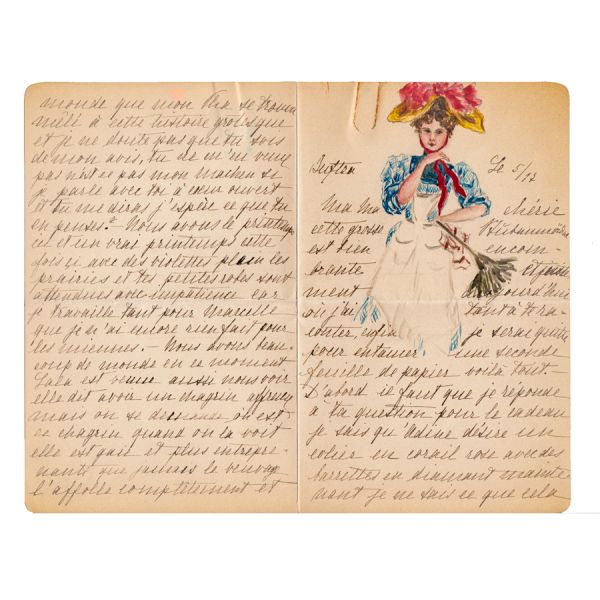 monde que mon Ara se trouve
mêlé à cette histoire grotesque
et je ne doute pas que tu sois
de mon avis, tu ne m'en veux
pas n'est ce pas mon
je parle avec toi à cœur ouvert
et tu me diras j'espère ce que tu
en penses? Nous avons le printemps
ici et un vrai printemps cette
fois ci avec des violettes plein les
prairies et tes petites robes sont
attendues avec impatience car
je travaille tant pour Marcelle
que je n'ai encore rien fait pour
les miennes. Nous avons beau-
coup de monde en ce moment
Lala est venue aussi nous voir
elle dit avoir un chagrin affreux
mais on se demande où est
ce chagrin quand on la voit
elle est gaie et plus entrepre-
nante que jamais le
l'affolle complètement et
Le 5/12
Ma Ma chérie
cette grosse
est bien encom-
brante
ment aujourd'hui
où j'ai tant à te ra-
conter, enfin je serai quitte
pour entamer une seconde
feuille de papier voilà tout.
D'abord il faut que je réponde
à ta question pour le cadeau
je sais qu'Adine désire un
colier en corail rose avec des
barrettes en diamant mainte-
nant je ne sais ce que cela